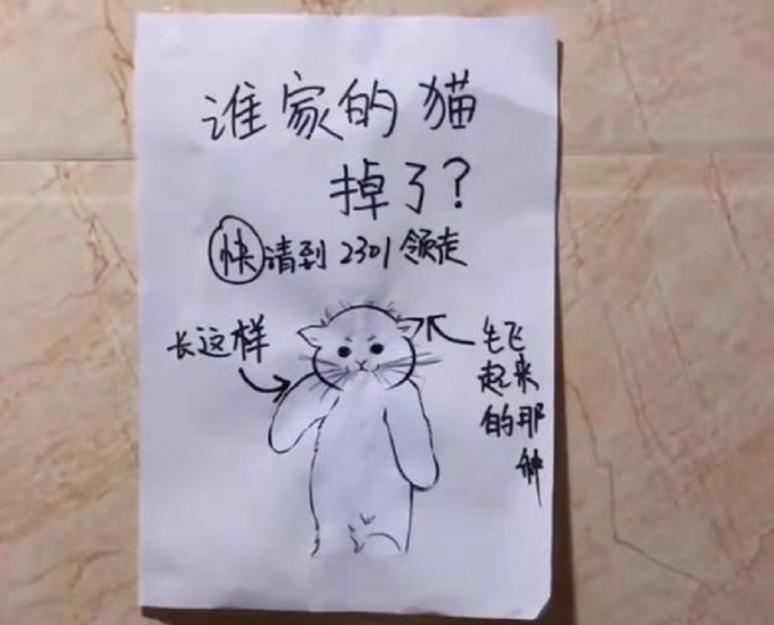 谁家的猫
掉了？
快请到2301领走
长这样
毛飞
起来
的那
种